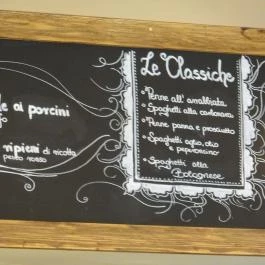 Le Classiche
Penne all' arrabbiata
Spaghetti alla carbonara
Penne panna e prosciutto
Spaghetti aglio, olio
e peperoncino
Spaghetti alla
Bolognese
ai porcini
ripieni di ricotta
pesto rosso